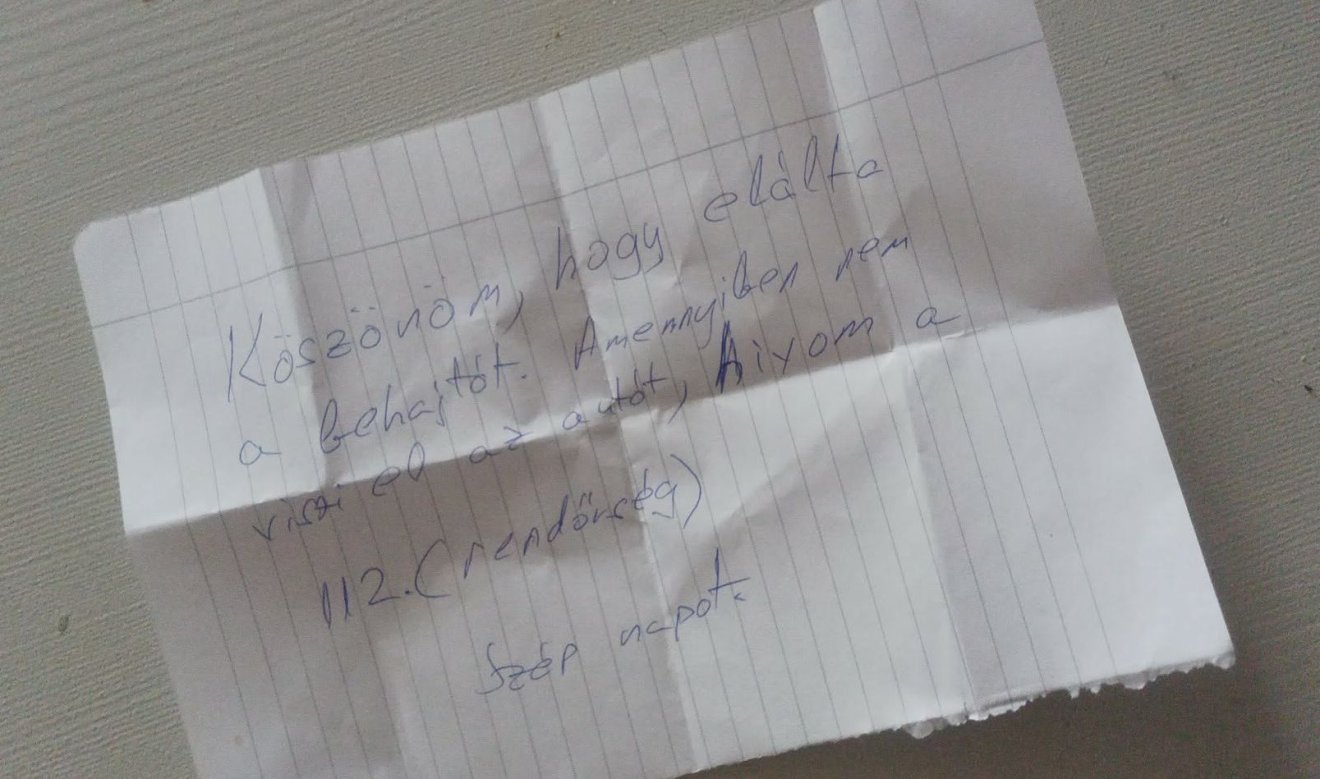 Köszönöm, hogy elálta
a behajtót. Amennyiben nem
viszi el az autót, hivom a
112. (rendőrség)
Szép napot.